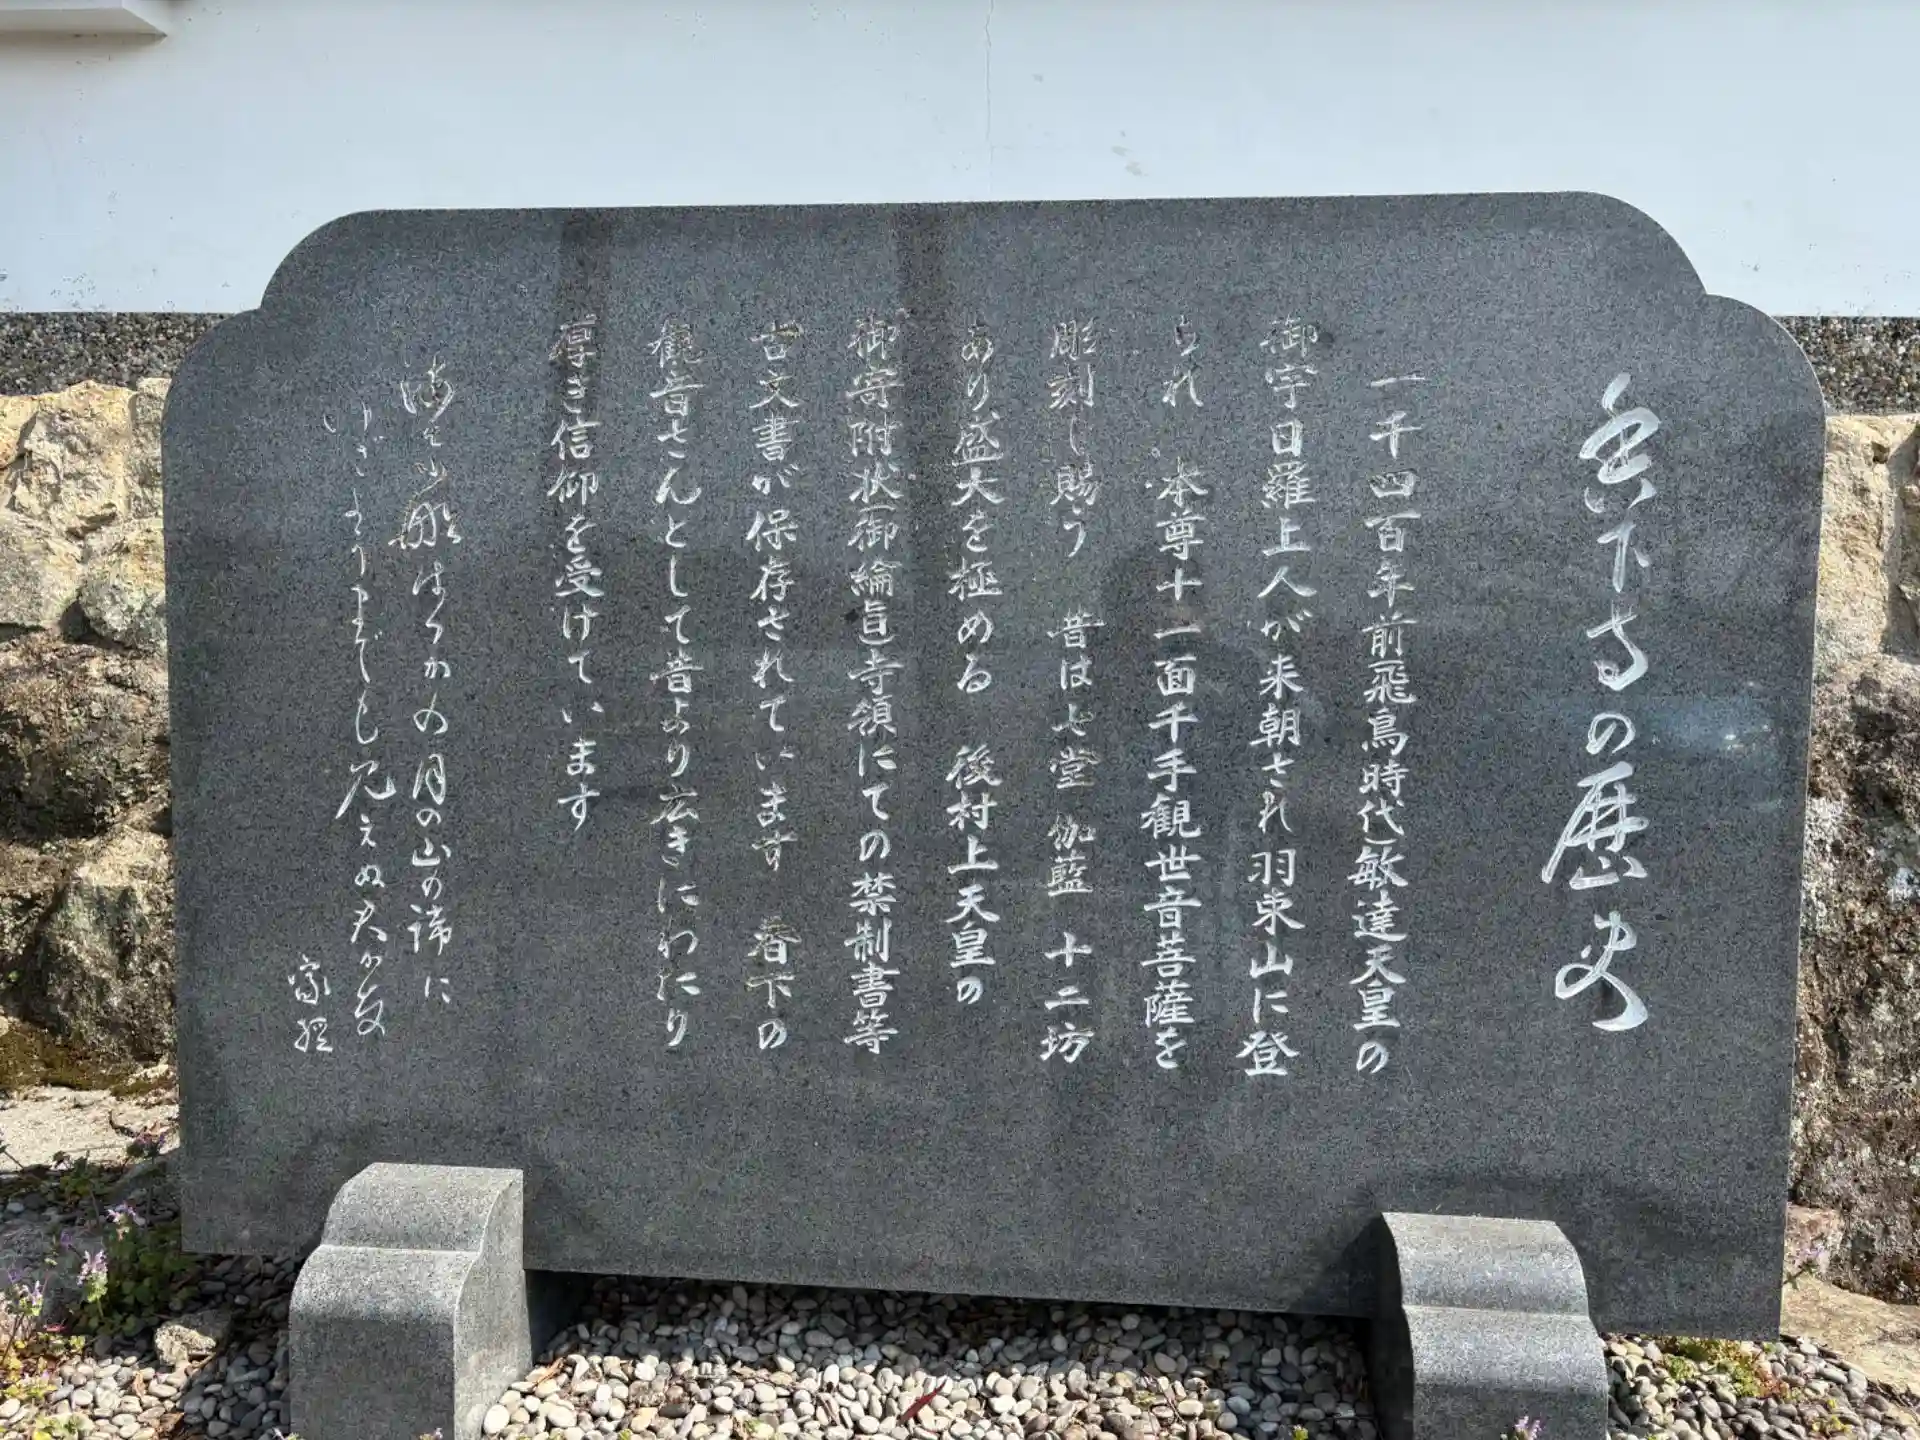 香下寺の歴史
一千四百年前飛鳥時代敏達天皇の
御宇日羅上人が来朝され羽束山に登
られ 本尊十一面千手観世音菩薩を
彫刻し賜う 昔は七堂伽藍 十二坊
あり盛大を極める 後村上天皇の
御寄附状御綸旨寺領にての禁制書等
古文書が保存されています 香下の
観音さんとして昔より広きにわたり
厚き信仰を受けています
海士小船はつかの月の山の端に
いざようまでも見えぬ君かな
家経